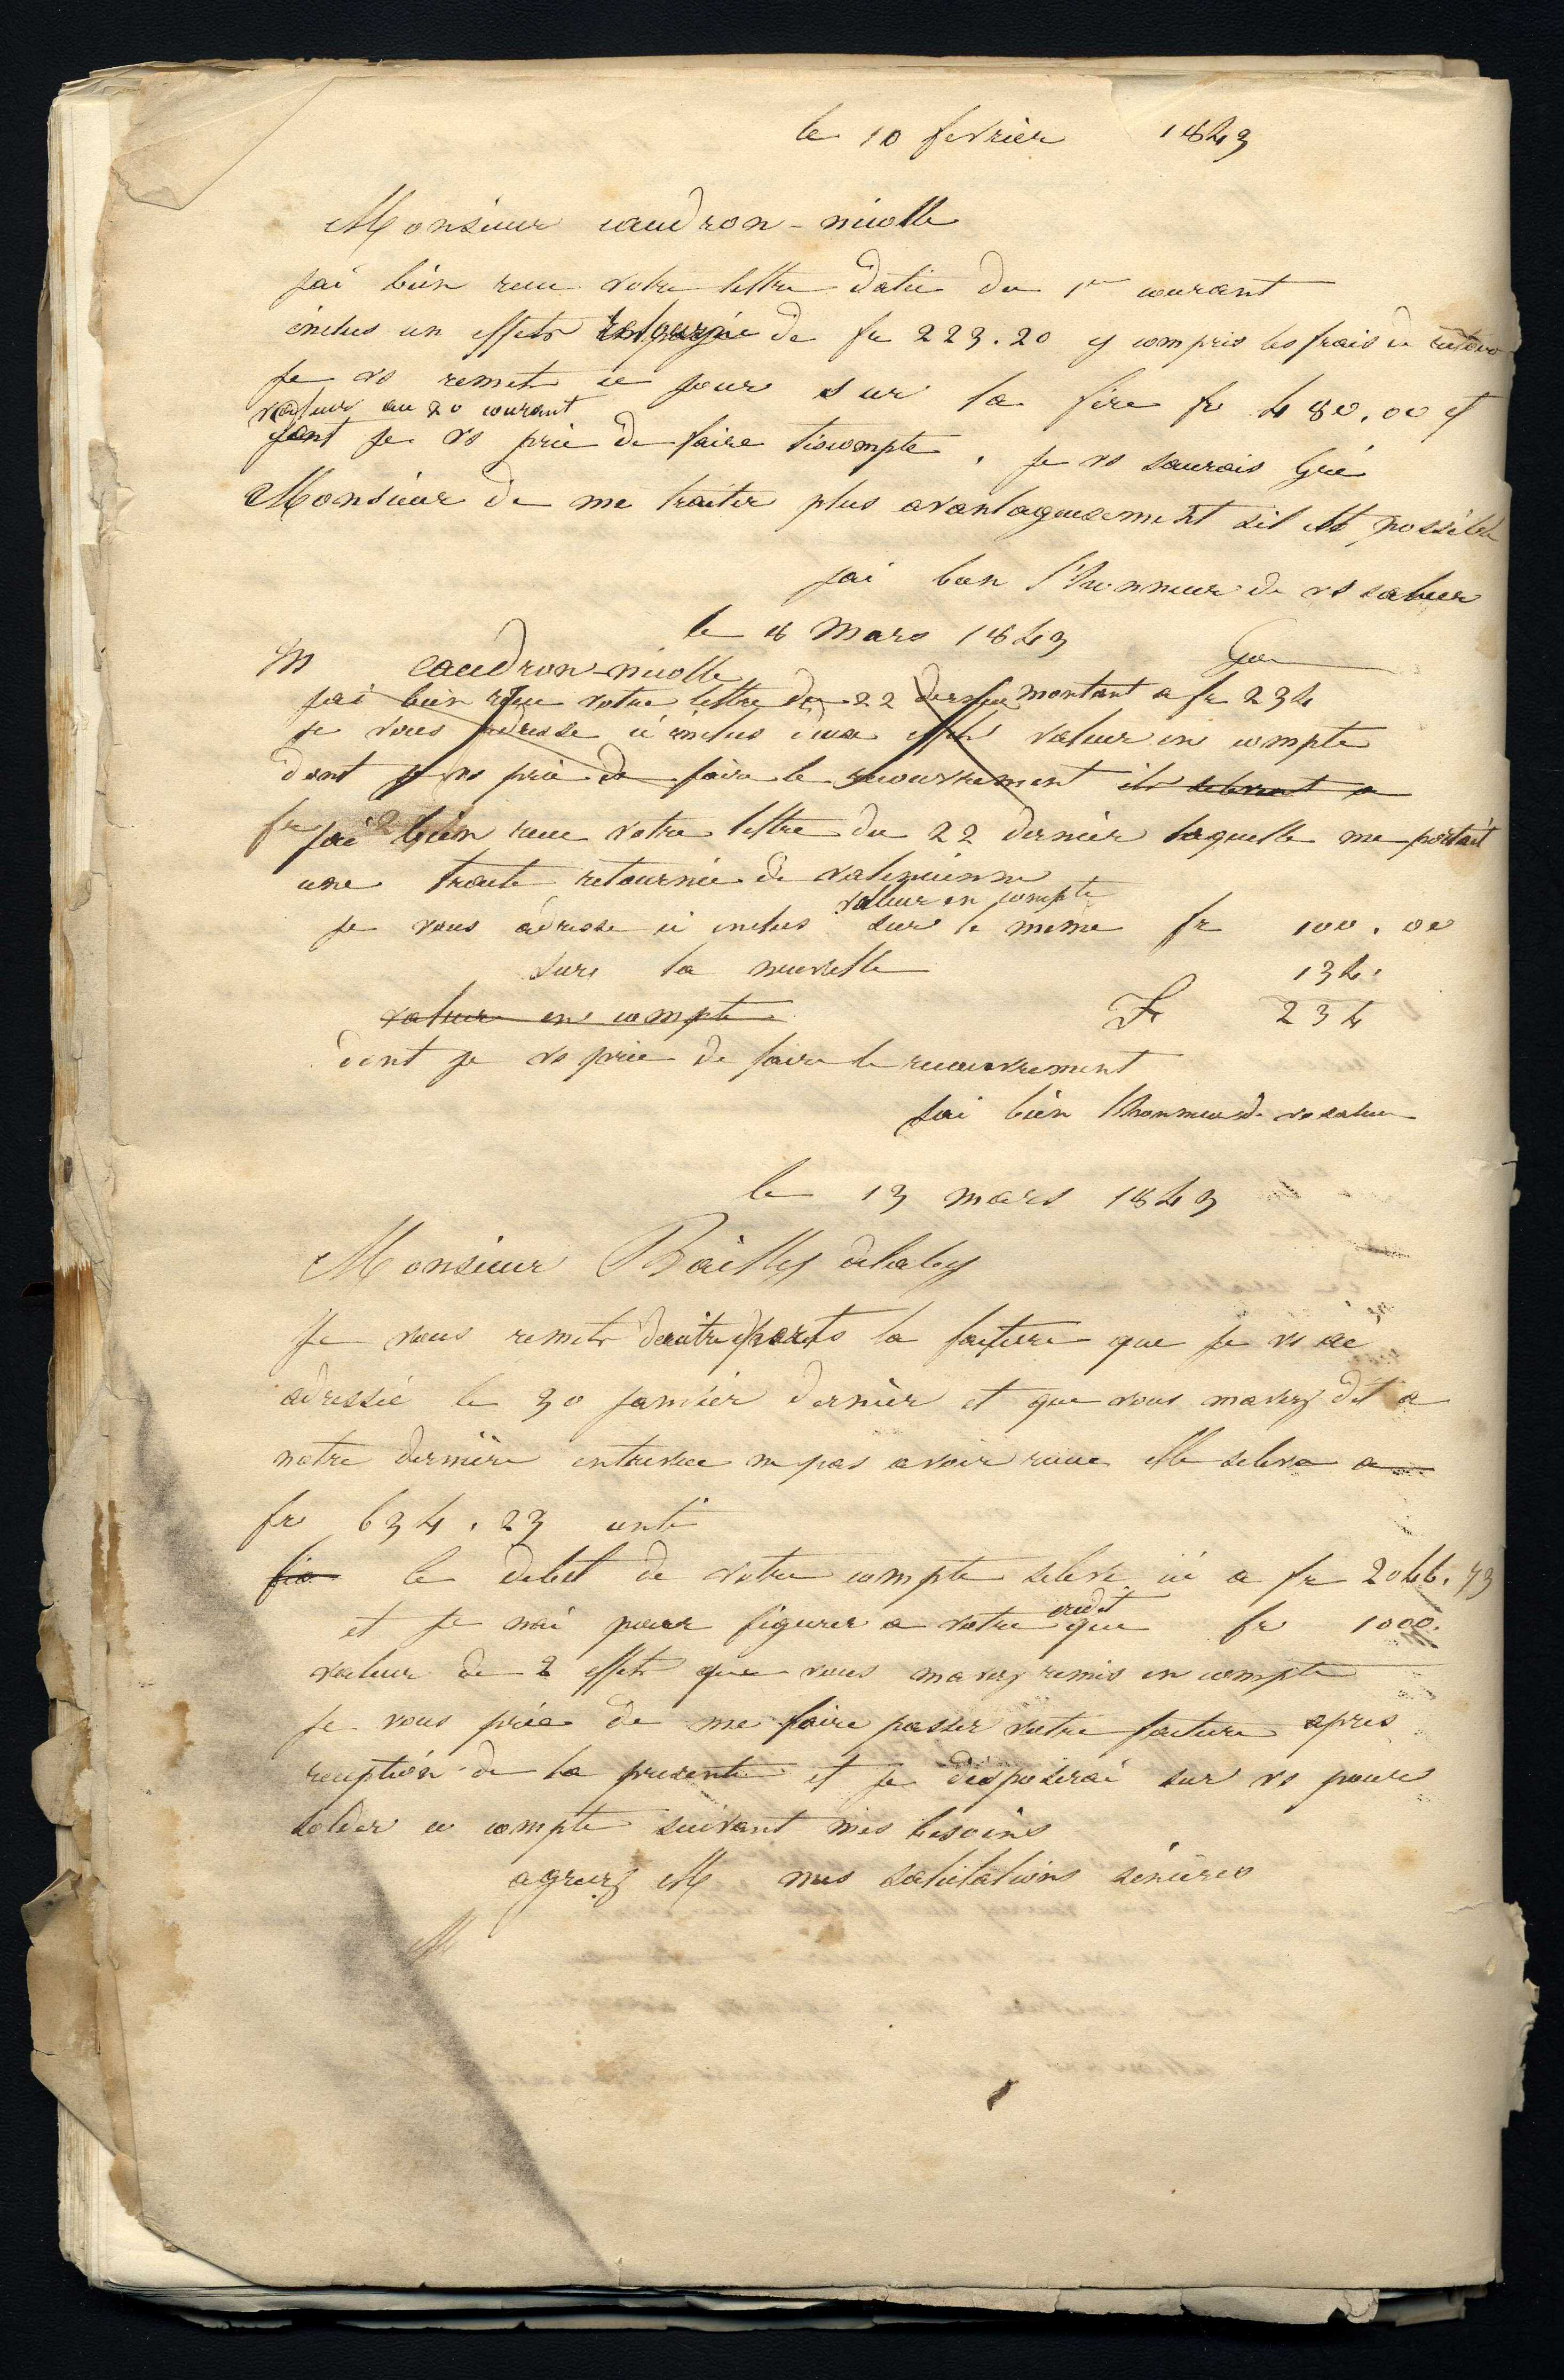 le 10 fevrier 1843
Monsieur caudron-nicolle
jai bien recu votre lettre datée du 1er courant
inclus un effets retourné de fr 223.20 y compris les frais de retour
je vs remet ce jour sur la fere fr 480.00
valeur au 20 courant
dont je vs prie de faire l'escompte. je vs saurais Gré
Monsieur de me traiter plus avantageusement sil est possible
jai bien l'honneur de vs saluer
le 8 Mars 1843
M caudron-nicolle
jai bien recu votre lettre du 22 dernier montant a fr 234
je vous adresse ci inclus deux effets valeur en compte
dont je vs prie de faire le recouvrement ils selevent a
fr 2
jai bien recue votre lettre du 22 dernier laquelle me portait
une traite retournée de valencienne
valeur en compte
je vous adresse ci inclus sur le meme fr 100.00
sur la neuville 134.
valeur en compte Fr 234
dont je vs prie de faire le recouvrement
jai bien lhonneur de vs saluer
le 13 mars 1843
Monsieur Bailly delaby
Je vous remets dautre parts la facture que je vs ai
adressée le 30 janvier dernier et que vous mavez dit a
notre derniere entrevue ne pas avoir recue elle seleve a
fr 634.23 cent
le debet de votre compte seleve ici a fr 2046.73
et je nai pour figurer a votre credit que fr 1000.
valeur de 2 effets que vous mavez remis en compte
je vous prie de me faire passer votre facture apres
reception de la presente et je disposerai sur vs pour
solder ce compte suivant mes besoins
agreez M mes salutations sinceres
M